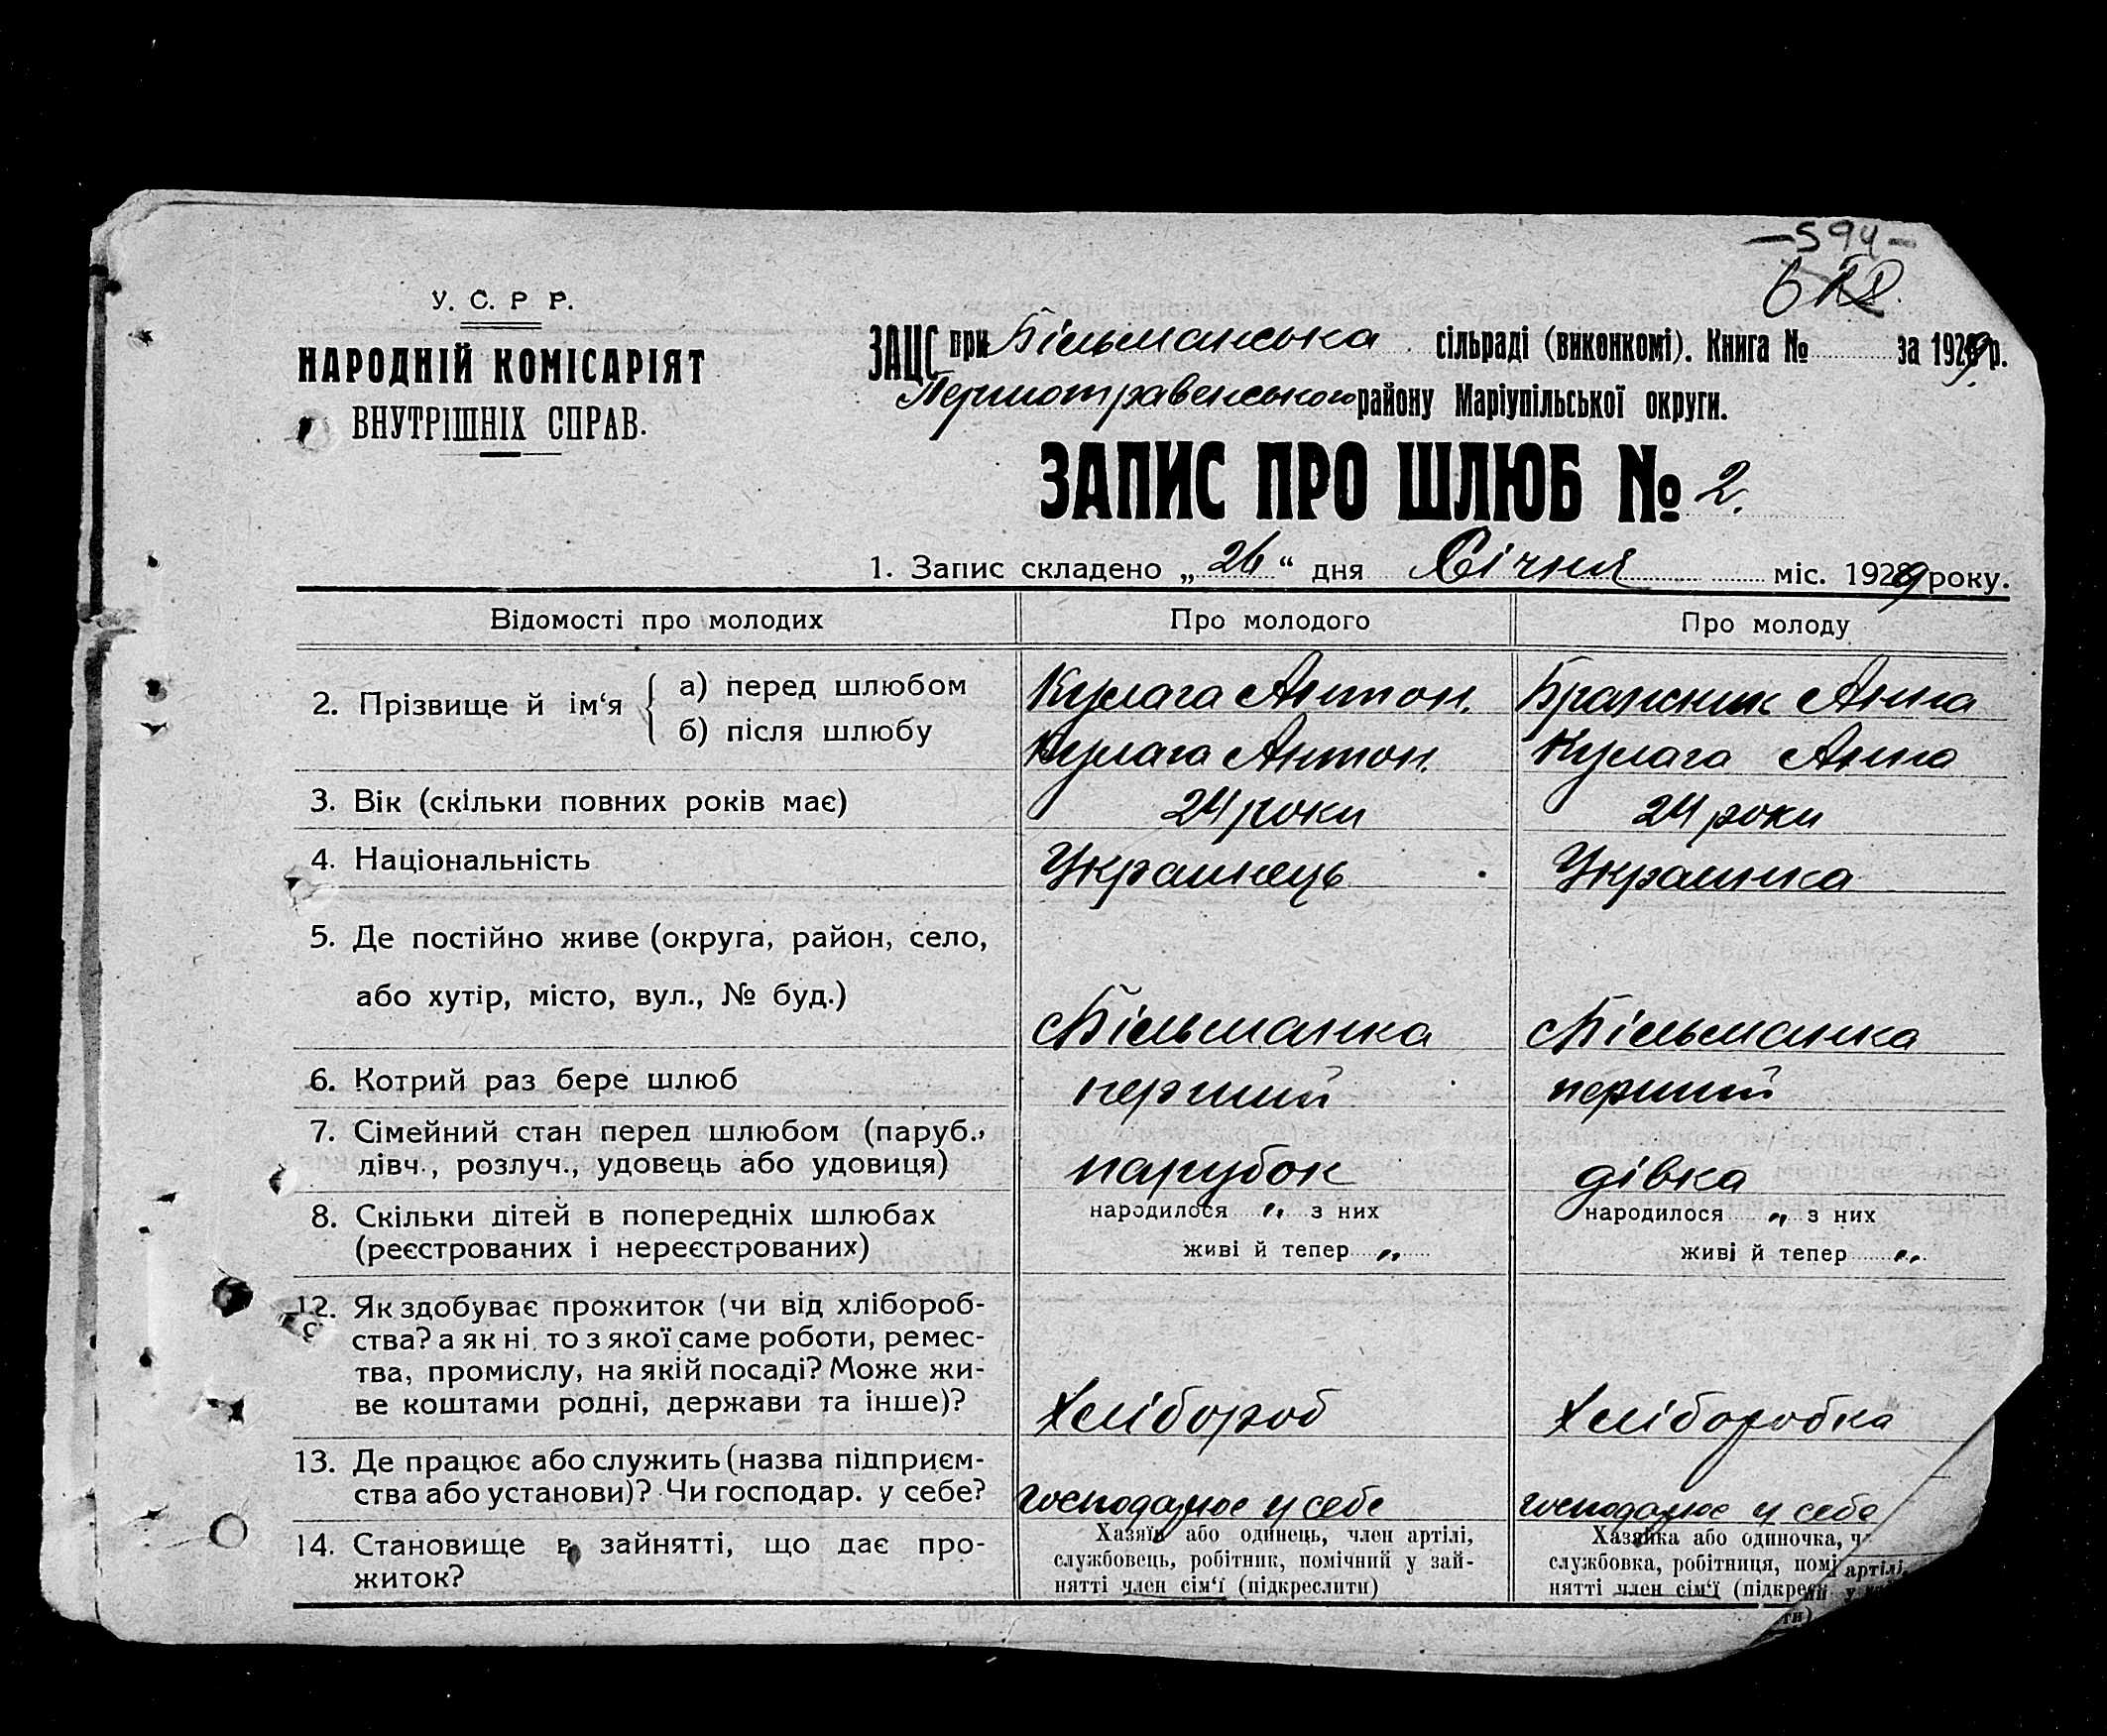 — 594 —
У. С. Р Р.
НАРОДНІЙ КОМІСАРІЯТ
ВНУТРІШНІХ СПРАВ.
ЗАЦС при Більманська сільраді (виконкомі). Книга № за 1929 р.
Першотравенського району Маріупільської округи.
ЗАПИС ПРО ШЛЮБ № 2.
1. Запис складено „ 26 “ дня Січня міс. 1929 року.
Відомості про молодих Про молодого Про молоду
2. Прізвище й ім‘я { а) перед шлюбом Кулага Антон. Бражник Анна
б) після шлюбу Кулага Антон. Кулага Анна
3. Вік (скільки повних років має) 24 роки 24 роки
4. Національність Украинець Украинка
5. Де постійно живе (округа, район, село,
або хутір, місто, вул., № буд.) сБільманка сБільманка
6. Котрий раз бере шлюб перший перший
7. Сімейний стан перед шлюбом (паруб.,
дівч., розлуч., удовець або удовиця) парубок дівка
8. Скільки дітей в попередніх шлюбах народилося „ з них народилося „ з них
(реєстрованих і нереєстрованих) живі й тепер „ живі й тепер „
12. Як здобуває прожиток (чи від хлібороб-
ства? а як ні, то з якої саме роботи, ремес-
тва, промислу, на якій посаді? Може жи-
ве коштами родні, держави та інше)? Хлібороб Хліборобка
13. Де працює або служить (назва підприєм-
ства або установи)? Чи господар. у себе? господарює у себе господарює у себе
14. Становище в зайнятті, що дає про-
житок?
Хазяїн або одинець, член артілі,
службовець, робітник, помічний у зай-
нятті член сім‘ї (підкреслити)
Хазяйка або одиночка, ч
службовка, робітниця, помі артілі,
нятті член сім‘ї (підкресл